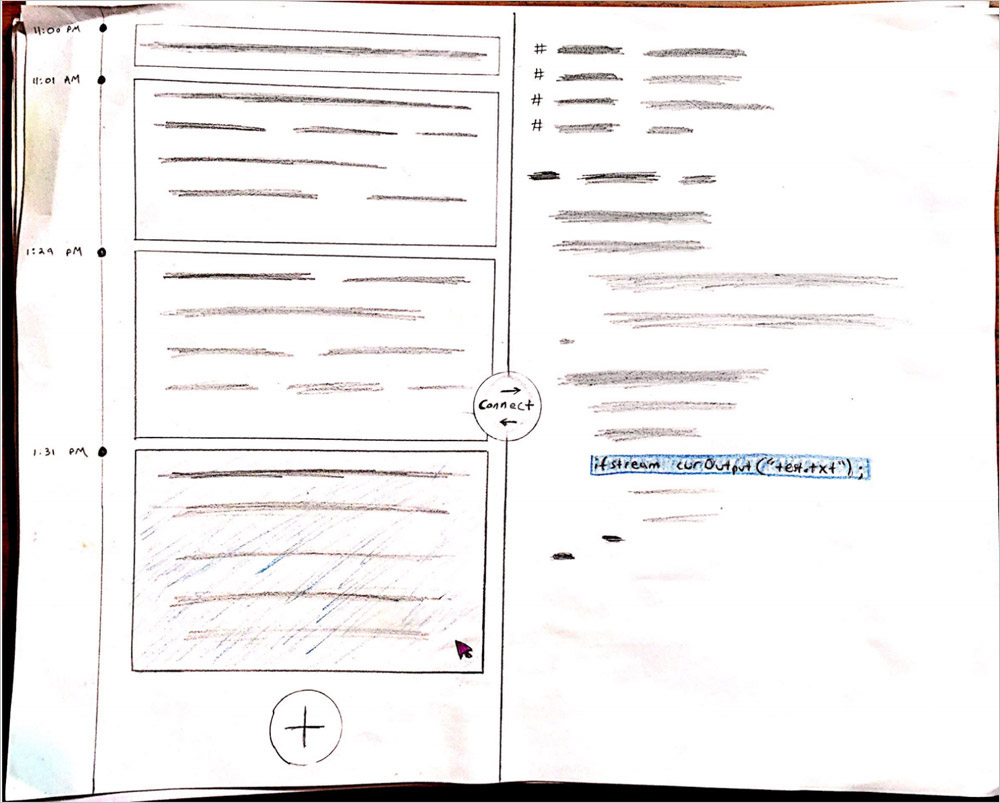 11:00 PM
11:01 AM
1:29 PM
1:31 PM
#
#
#
#
→
Connect
←
ifstream curOutput("test.txt");
+